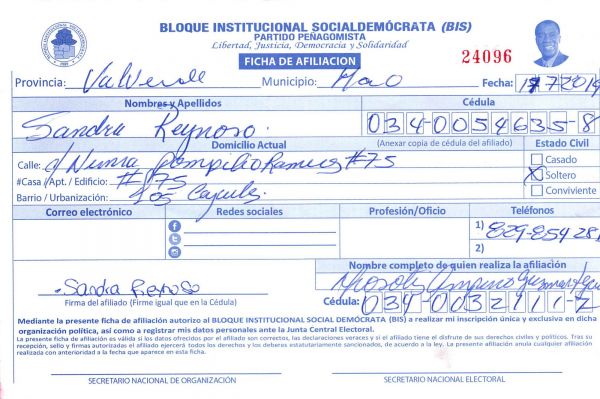 BLOQUE INSTITUCIONAL SOCIALDEMÓCRATA (BIS)
PARTIDO PEÑAGOMISTA
Libertad, Justicia, Democracia y Solidaridad
FICHA DE AFILIACION
24096
Provincia: Valverde Municipio: Mao Fecha: 7 2019
Nombres y Apellidos Cédula
Sandra Reynoso 034-0054635-8
Domicilio Actual (Anexar copia de cédula del afiliado) Estado Civil
Calle: c/ Numa Pompilio #75
Casado
#Casa /Apt. / Edificio: #75
Soltero
Barrio / Urbanización: Los
Conviviente
Correo electrónico Redes sociales Profesión/Oficio Teléfonos
1) 829-854 281
2)
Nombre completo de quien realiza la afiliación
Sandra Reynoso
Firma del afiliado (Firme igual que en la Cédula)
Cédula: 034-0032111-7
Mediante la presente ficha de afiliación autorizo al BLOQUE INSTITUCIONAL SOCIAL DEMÓCRATA (BIS) a realizar mi inscripción única y exclusiva en dicha
organización política, así como a registrar mis datos personales ante la Junta Central Electoral.
La presente ficha de afiliación es válida si los datos ofrecidos por el afiliado son correctos, las declaraciones veraces y si el afiliado tiene el disfrute de sus derechos civiles y políticos. Tras su
recepción, sello y firmas autorizadas el afiliado ejercerá todos los derechos y los deberes estatutariamente sancionados, de acuerdo a la ley. La presente afiliación anula cualquier afiliación
realizada con anterioridad a la fecha que aparece en esta ficha.
SECRETARIO NACIONAL DE ORGANIZACIÓN SECRETARIO NACIONAL ELECTORAL